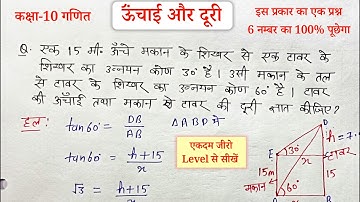 कक्षा-10 गणित
ऊँचाई और दूरी
इस प्रकार का एक प्रश्न
6 नम्बर का 100% पूछेगा
Q. एक 15 मी॰ ऊँचे मकान के शिखर से एक टावर के
शिखर का उन्नयन कोण 30° है। उसी मकान के तल
से टावर के शिखर का उन्नयन कोण 60° है। टावर
की ऊँचाई तथा मकान से टावर की दूरी ज्ञात कीजिए?
हल:
tan60° = DB/AB
△ABD में
tan60° = h+15/x
√3 = h+15/x
एकदम जीरो
Level से सीखें
D
h = 7.
30°
E
x
टावर
15
15
मकान
60°
x